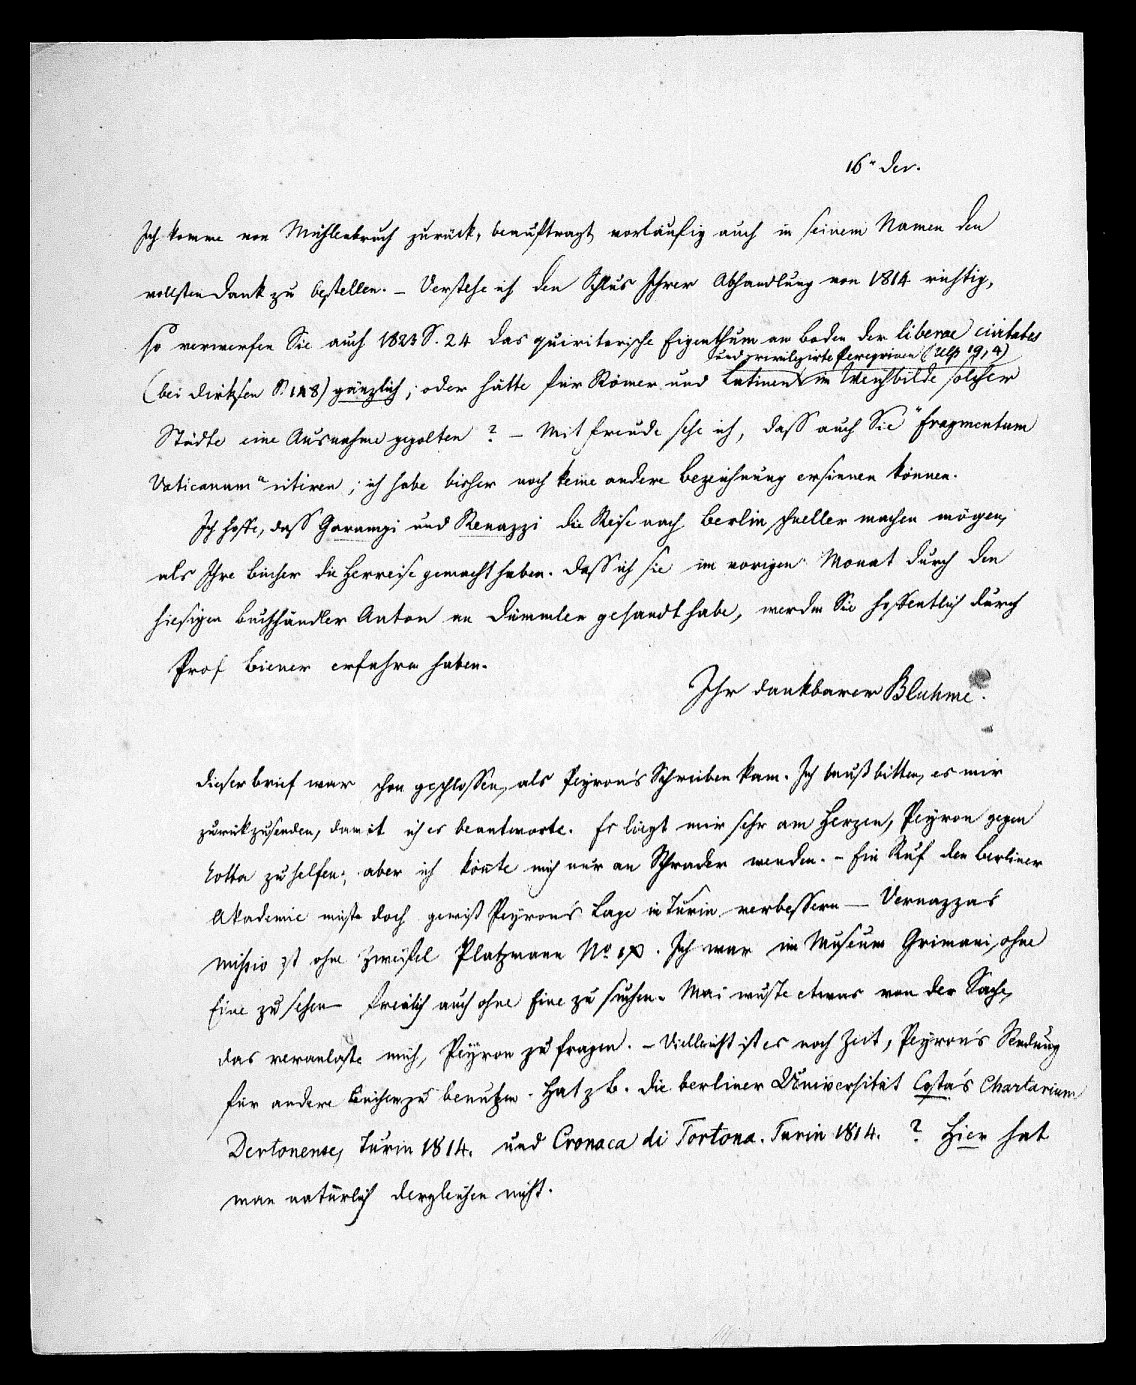 16n Dec.
Ich komme von Mühlenbruch zurück, beauftragt vorläufig auch in seinem Namen den
vollsten Dank zu bestellen. – Verstehe ich den Schlus Ihrer Abhandlung von 1814 richtig,
so verwerfen Sie auch 1823 S. 24 das quiritarische Eigenthum am Boden der liberae civitates
und privilegirte Peregrinen (Ulp 19, 4)
(bei Dirksen S. 148) gänzlich; oder hätte für Römer und Latinen im Weichbilde solcher
Städte eine Ausnahme gegolten? – Mit Freude sehe ich, dass auch Sie "fragmentum
Vaticanum" citiren; ich habe bisher noch keine andere Bezeichnung ersinnen können.
Ich hoffe, dass Garampi und Renazzi die Reise nach Berlin schneller machen mögen,
als Ihre Bücher die Herreise gemacht haben. Dass ich sie im vorigen Monat durch den
hiesigen Buchhändler Anton an Dümmler gesandt habe, werden Sie hoffentlich durch
Prof Biener erfahren haben.
Ihr dankbarer Bluhme.
Dieser Brief war schon geschlossen, als Peyron's Schreiben kam. Ich muß bitten, es mir
zurückzusenden, damit ich es beantworte. Es liegt mir sehr am Herzen, Peyron gegen
Cotta zu helfen; aber ich könte mich nur an Schrader wenden. – Ein Ruf der Berliner
Akademie müste doch gewiß Peyron's Lage in Turin verbessern — Vernazza's
missio ist ohne Zweifel Platzmann No. Ich war im Museum Grimani, ohne
Eine zu sehen – freilich auch ohne Eine zu suchen. Mai wuste etwas von der Sache,
das veranlaste mich, Peyron zu fragen. – Vielleicht ist es noch Zeit, Peyron's Sendung
für andere Bücher zu benutzen. Hat z B. die berliner Universität Costa's Chartarium
Dertonense, Turin 1814. und Cronaca di Tortona. Turin 1814. ? Hier hat
man natürlich dergleichen nicht.